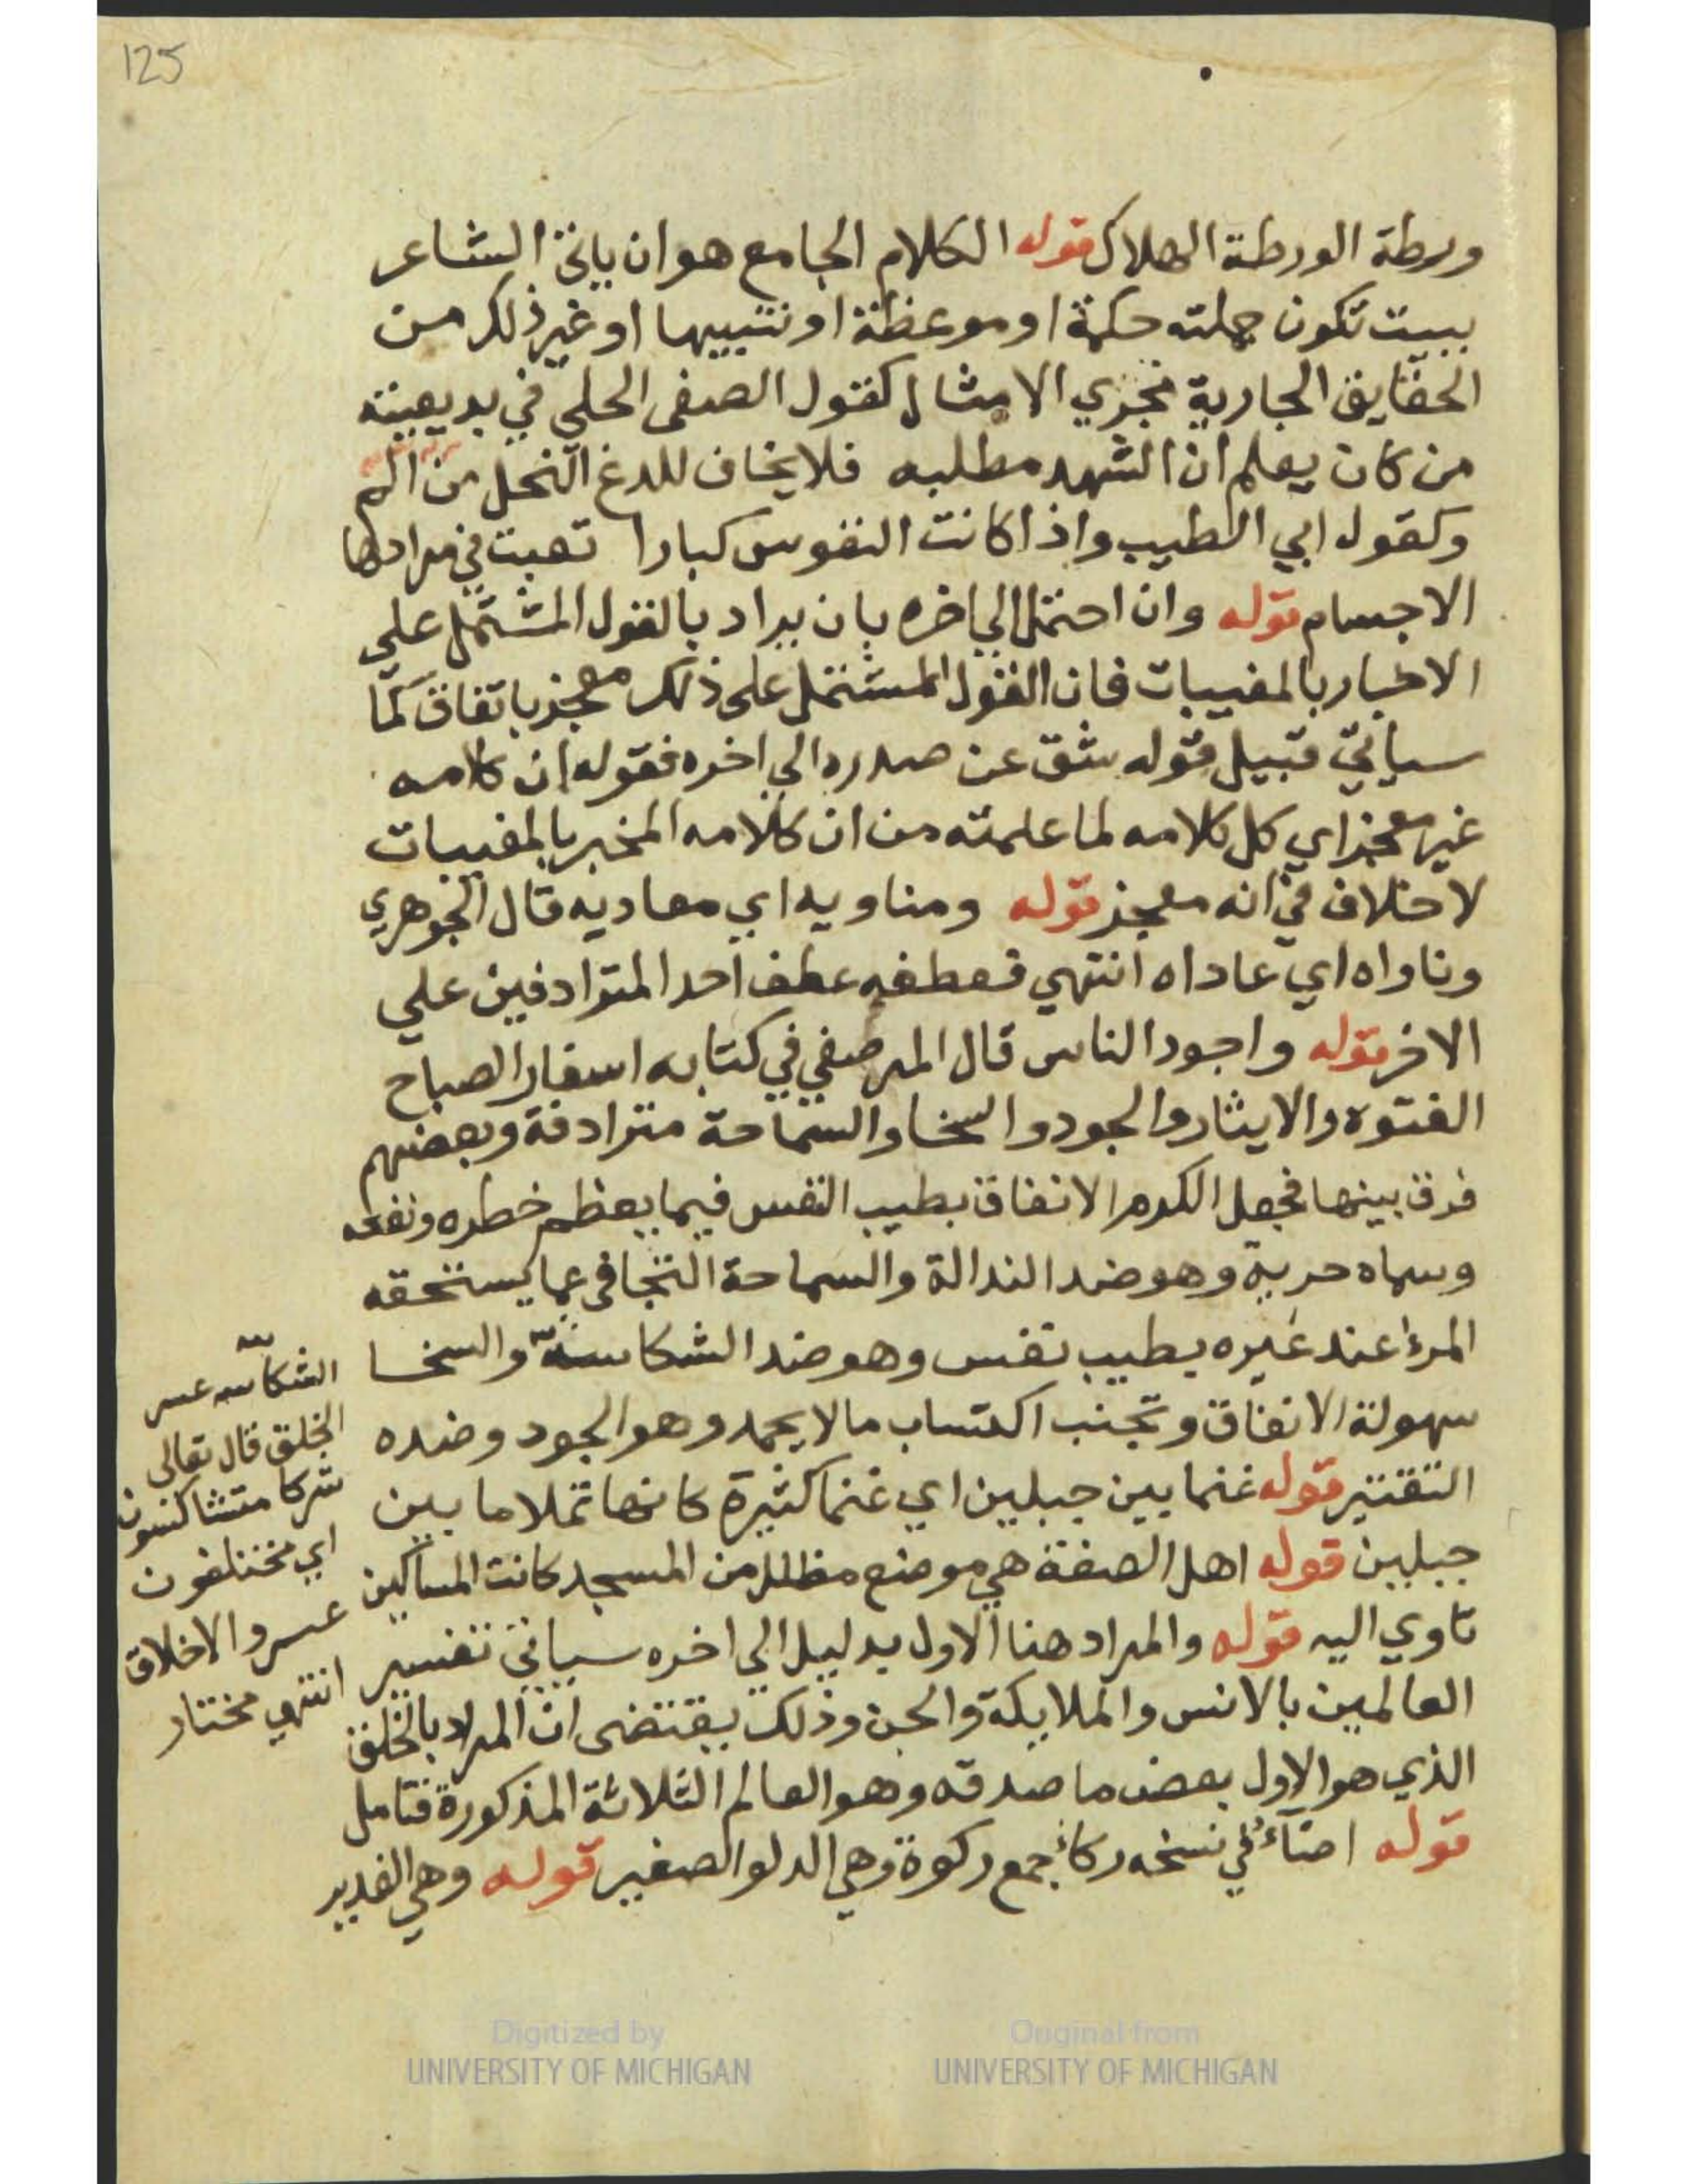 125
ورطة الورطة الهلاك قوله الكلام الجامع هو ان ياتي الشاعر
ببيت تكون جملته حكمة او موعظة او تنبيها او غير ذلك من
الحقايق الجارية مجري الامثال كقول الصفى الحلى في بديعيته
من كان يعلم ان الشهد مطلبه فلا يخاف للدغ النحل من الم
وكقول ابي الطيب واذا كانت النفوس كبارا تعبت في مرادها
الاجسام قوله وان احتمل الي اخره بان يراد بالقول المشتمل علي
الاخبار بالمغيبات فان القول المشتمل على ذلك معجز باتفاق كما
سياتي قبيل قوله شق عن صدره الي اخره فقوله ان كلامه
غير معجز اي كل كلامه لما علمته من ان كلامه المخبر بالمغيبات
لا خلاف في انه معجز قوله ومناويه اي معاديه قال الجوهري
وناواه اي عاداه انتهي فعطفه عطف احد المترادفين علي
الاخر قوله واجود الناس قال المرصفي في كتابه اسفار الصباح
الفتوه والايثار والجود والسخا والسماحة مترادفة وبعضهم
فرق بينها فجعل الكرم الانفاق بطيب النفس فيما يعظم خطره ونفعه
وسماه حرية وهو ضد الندالة والسماحة التجافى عما يستحقه
المرء عند غيره بطيب نفس وهو ضد الشكاسة والسخا
سهولة الانفاق وتجنب اكتساب ما لا يحمد وهو الجود وضده
التقتير قوله غنما بين جبلين اي غنما كثيرة كانها تملا ما بين
جبلين قوله اهل الصفة هي موضع مظلل من المسجد كانت المساكين
تاوي اليه قوله والمراد هنا الاول بدليل الي اخره سياتي تفسير
العالمين بالانس والملايكة والجن وذلك يقتضى ان المراد بالخلق
الذي هو الاول بعض ما صدقه وهو العالم الثلاثة المذكورة فتامل
قوله اضاء في نسخه ركاء جمع ركوة وهي الدلو الصغير قوله وهي الغدير
الشكاسه عسر
الخلق قال تعالى
شركا متشاكسون
اي مختلفون
عسر والاخلاق
انتهي مختار
Digitized by
UNIVERSITY OF MICHIGAN
Original from
UNIVERSITY OF MICHIGAN